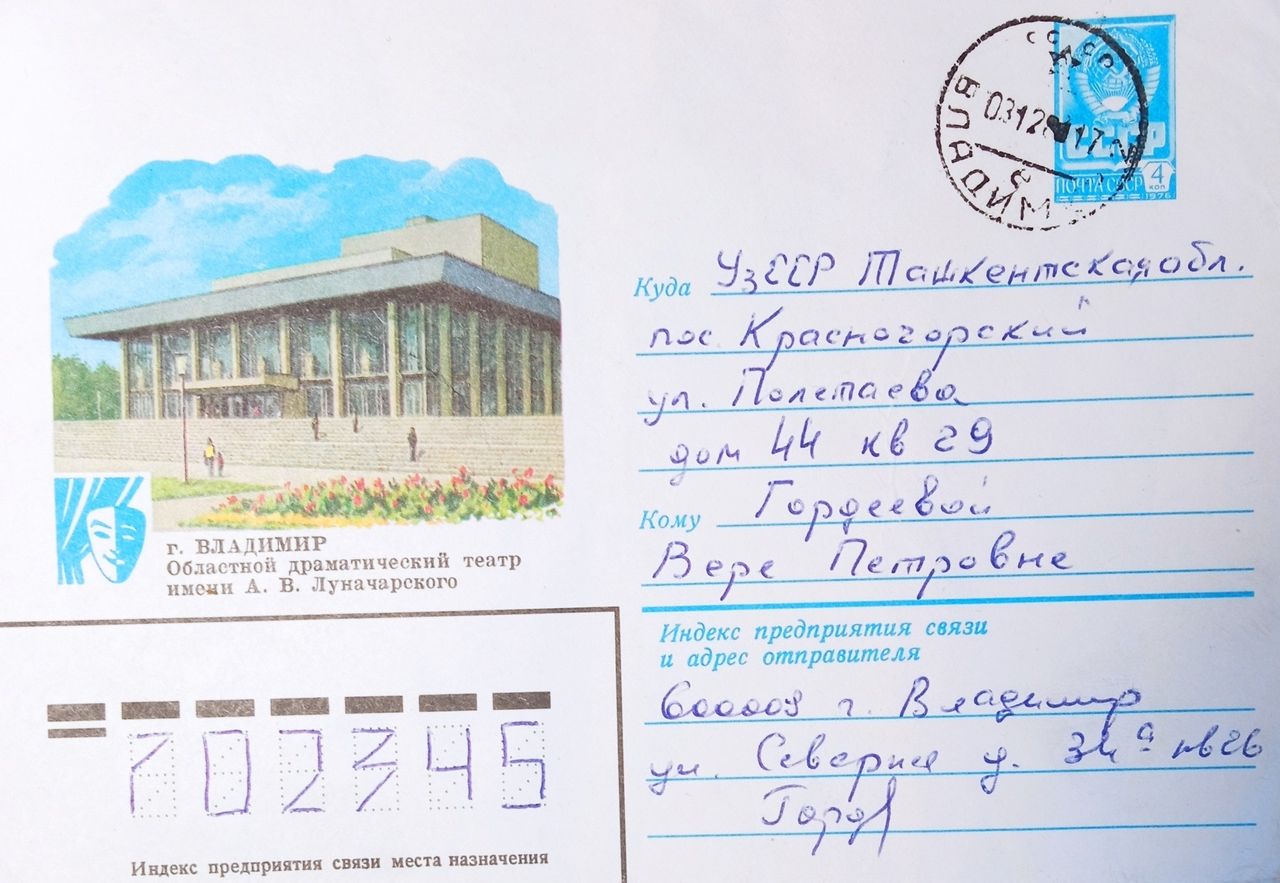 СССР
ВЛАДИМИР
0312 17
СССР
ПОЧТА СССР 4 КОП
1976
Куда УзССР Ташкентская обл.
пос. Красногорский
ул. Полетаева
дом 44 кв 29
Кому Гордеевой
Вере Петровне
г. ВЛАДИМИР
Областной драматический театр
имени А. В. Луначарского
Индекс предприятия связи
и адрес отправителя
г. Владимир
ул. Северная д. кв 26
702345
Индекс предприятия связи места назначения